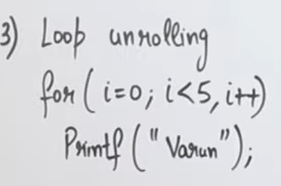 3) Loop unrolling
for ( i=0; i<5, i++)
Printf ("Varun");